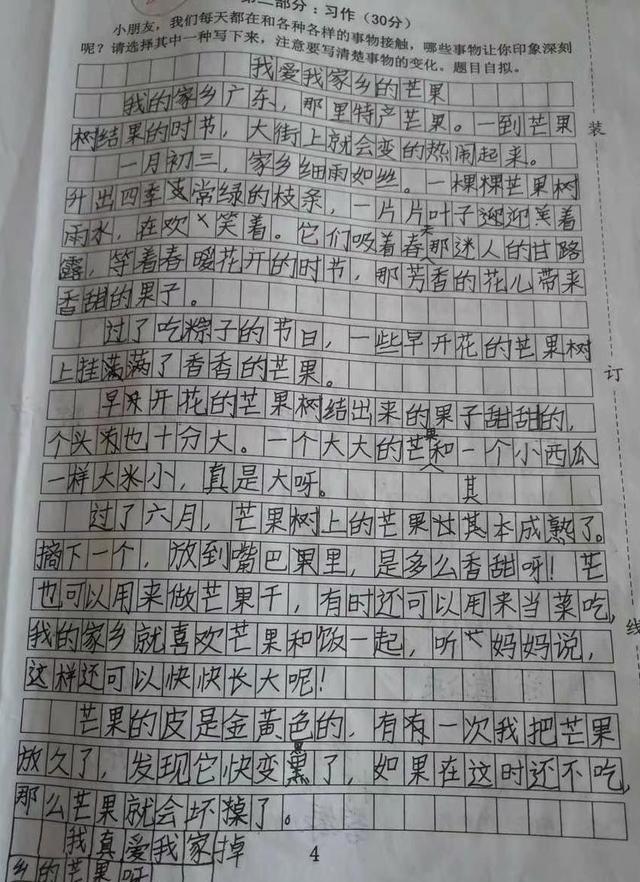 第二部分：习作（30分）
小朋友，我们每天都在和各种各样的事物接触，哪些事物让你印象深刻
呢？请选择其中一种写下来，注意要写清楚事物的变化。题目自拟。
我爱我家乡的芒果
我的家乡广东，那里特产芒果。一到芒果
树结果的时节，大街上就会变的热闹起来。
一月初三，家乡细雨如丝。一棵棵芒果树
升出四季常绿的枝条，一片片叶子迎着
雨水，在欢笑着。它们吸着春天那迷人的甘
露，等着春暖花开的时节，那芳香的花儿带来
香甜的果子。
过了吃粽子的节日，一些早开花的芒果树
上挂满满了香香的芒果。
早开花的芒果树结出来的果子甜甜的，
个头也十分大。一个大大的芒果和一个小西瓜
一样大米小，真是大呀。
过了六月，芒果树上的芒果其本成熟了。
摘下一个，放到嘴巴里，是多么香甜呀！芒
也可以用来做芒果干，有时还可以用来当菜吃，
我的家乡就喜欢芒果和饭一起，听妈妈说，
这样还可以快快长大呢！
芒果的皮是金黄色的，有一次我把芒果
放久了，发现它快变黑了，如果在这时还不吃，
那么芒果就会坏掉了。
我真爱我家
乡的芒果呀
4
装
订
线